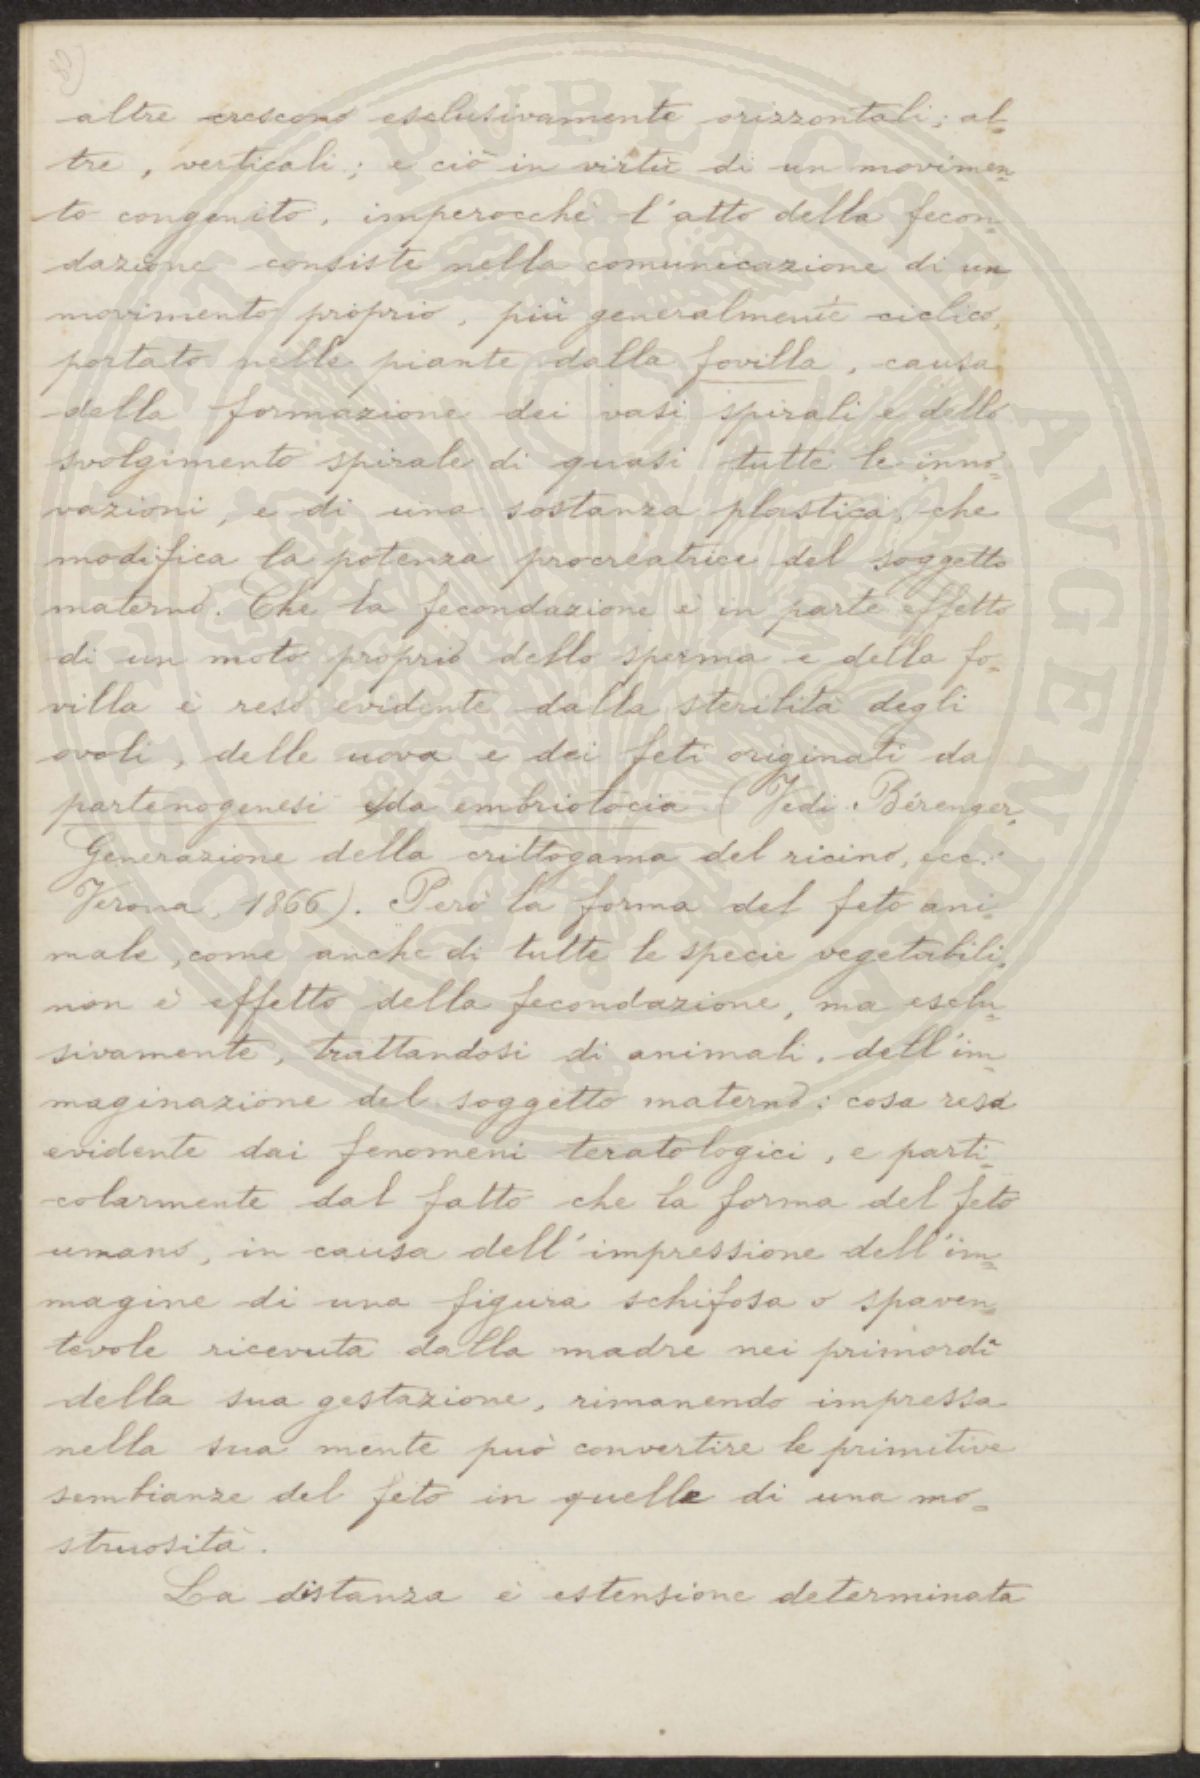 80)
altre crescono esclusivamente orizzontali; al=
tre, verticali; e ciò in virtù di un movimen=
to congenito, imperocchè l'atto della fecon=
dazione consiste nella comunicazione di un
movimento proprio, più generalmente ciclico,
portato nelle piante dalla fovilla, causa
della formazione dei vasi spirali e dello
svolgimento spirale di quasi tutte le inno=
vazioni, e di una sostanza plastica, che
modifica la potenza procreatrice del soggetto
materno. Che la fecondazione è in parte effetto
di un moto proprio dello sperma e della fo=
villa è reso evidente dalla sterilità degli
ovoli, delle uova e dei feti originati da
partenogenesi e da embriotocia (Vedi: Bérenger,
Generazione della crittogama del ricino, ecc.
Verona, 1866). Però la forma del feto ani=
male, come anche di tutte le specie vegetabili,
non è effetto della fecondazione, ma esclu=
sivamente, trattandosi di animali, dell'im=
maginazione del soggetto materno: cosa resa
evidente dai fenomeni teratologici, e parti=
colarmente dal fatto che la forma del feto
umano, in causa dell'impressione dell'im=
magine di una figura schifosa o spaven=
tevole ricevuta dalla madre nei primordî
della sua gestazione, rimanendo impressa
nella sua mente può convertire le primitive
sembianze del feto in quelle di una mo=
struosità.
La distanza è estensione determinata